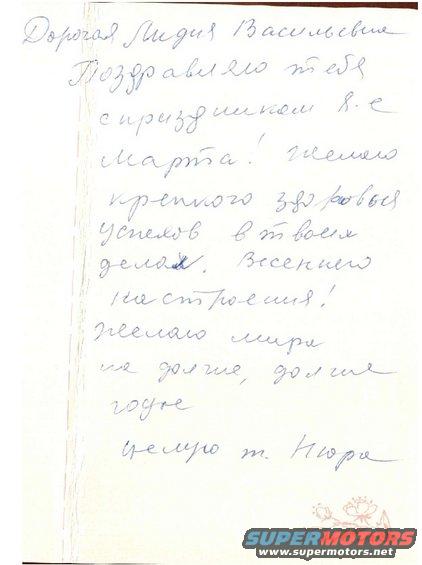 Дорогая Лидия Васильевна
Поздравляю тебя
с праздником 8-е
марта! Желаю
крепкого здоровья
успехов в твоих
делах. Весеннего
настроения!
Желаю мира
на долгие, долгие
годы
целую т. Нюра
SUPERMOTORS
www.supermotors.net